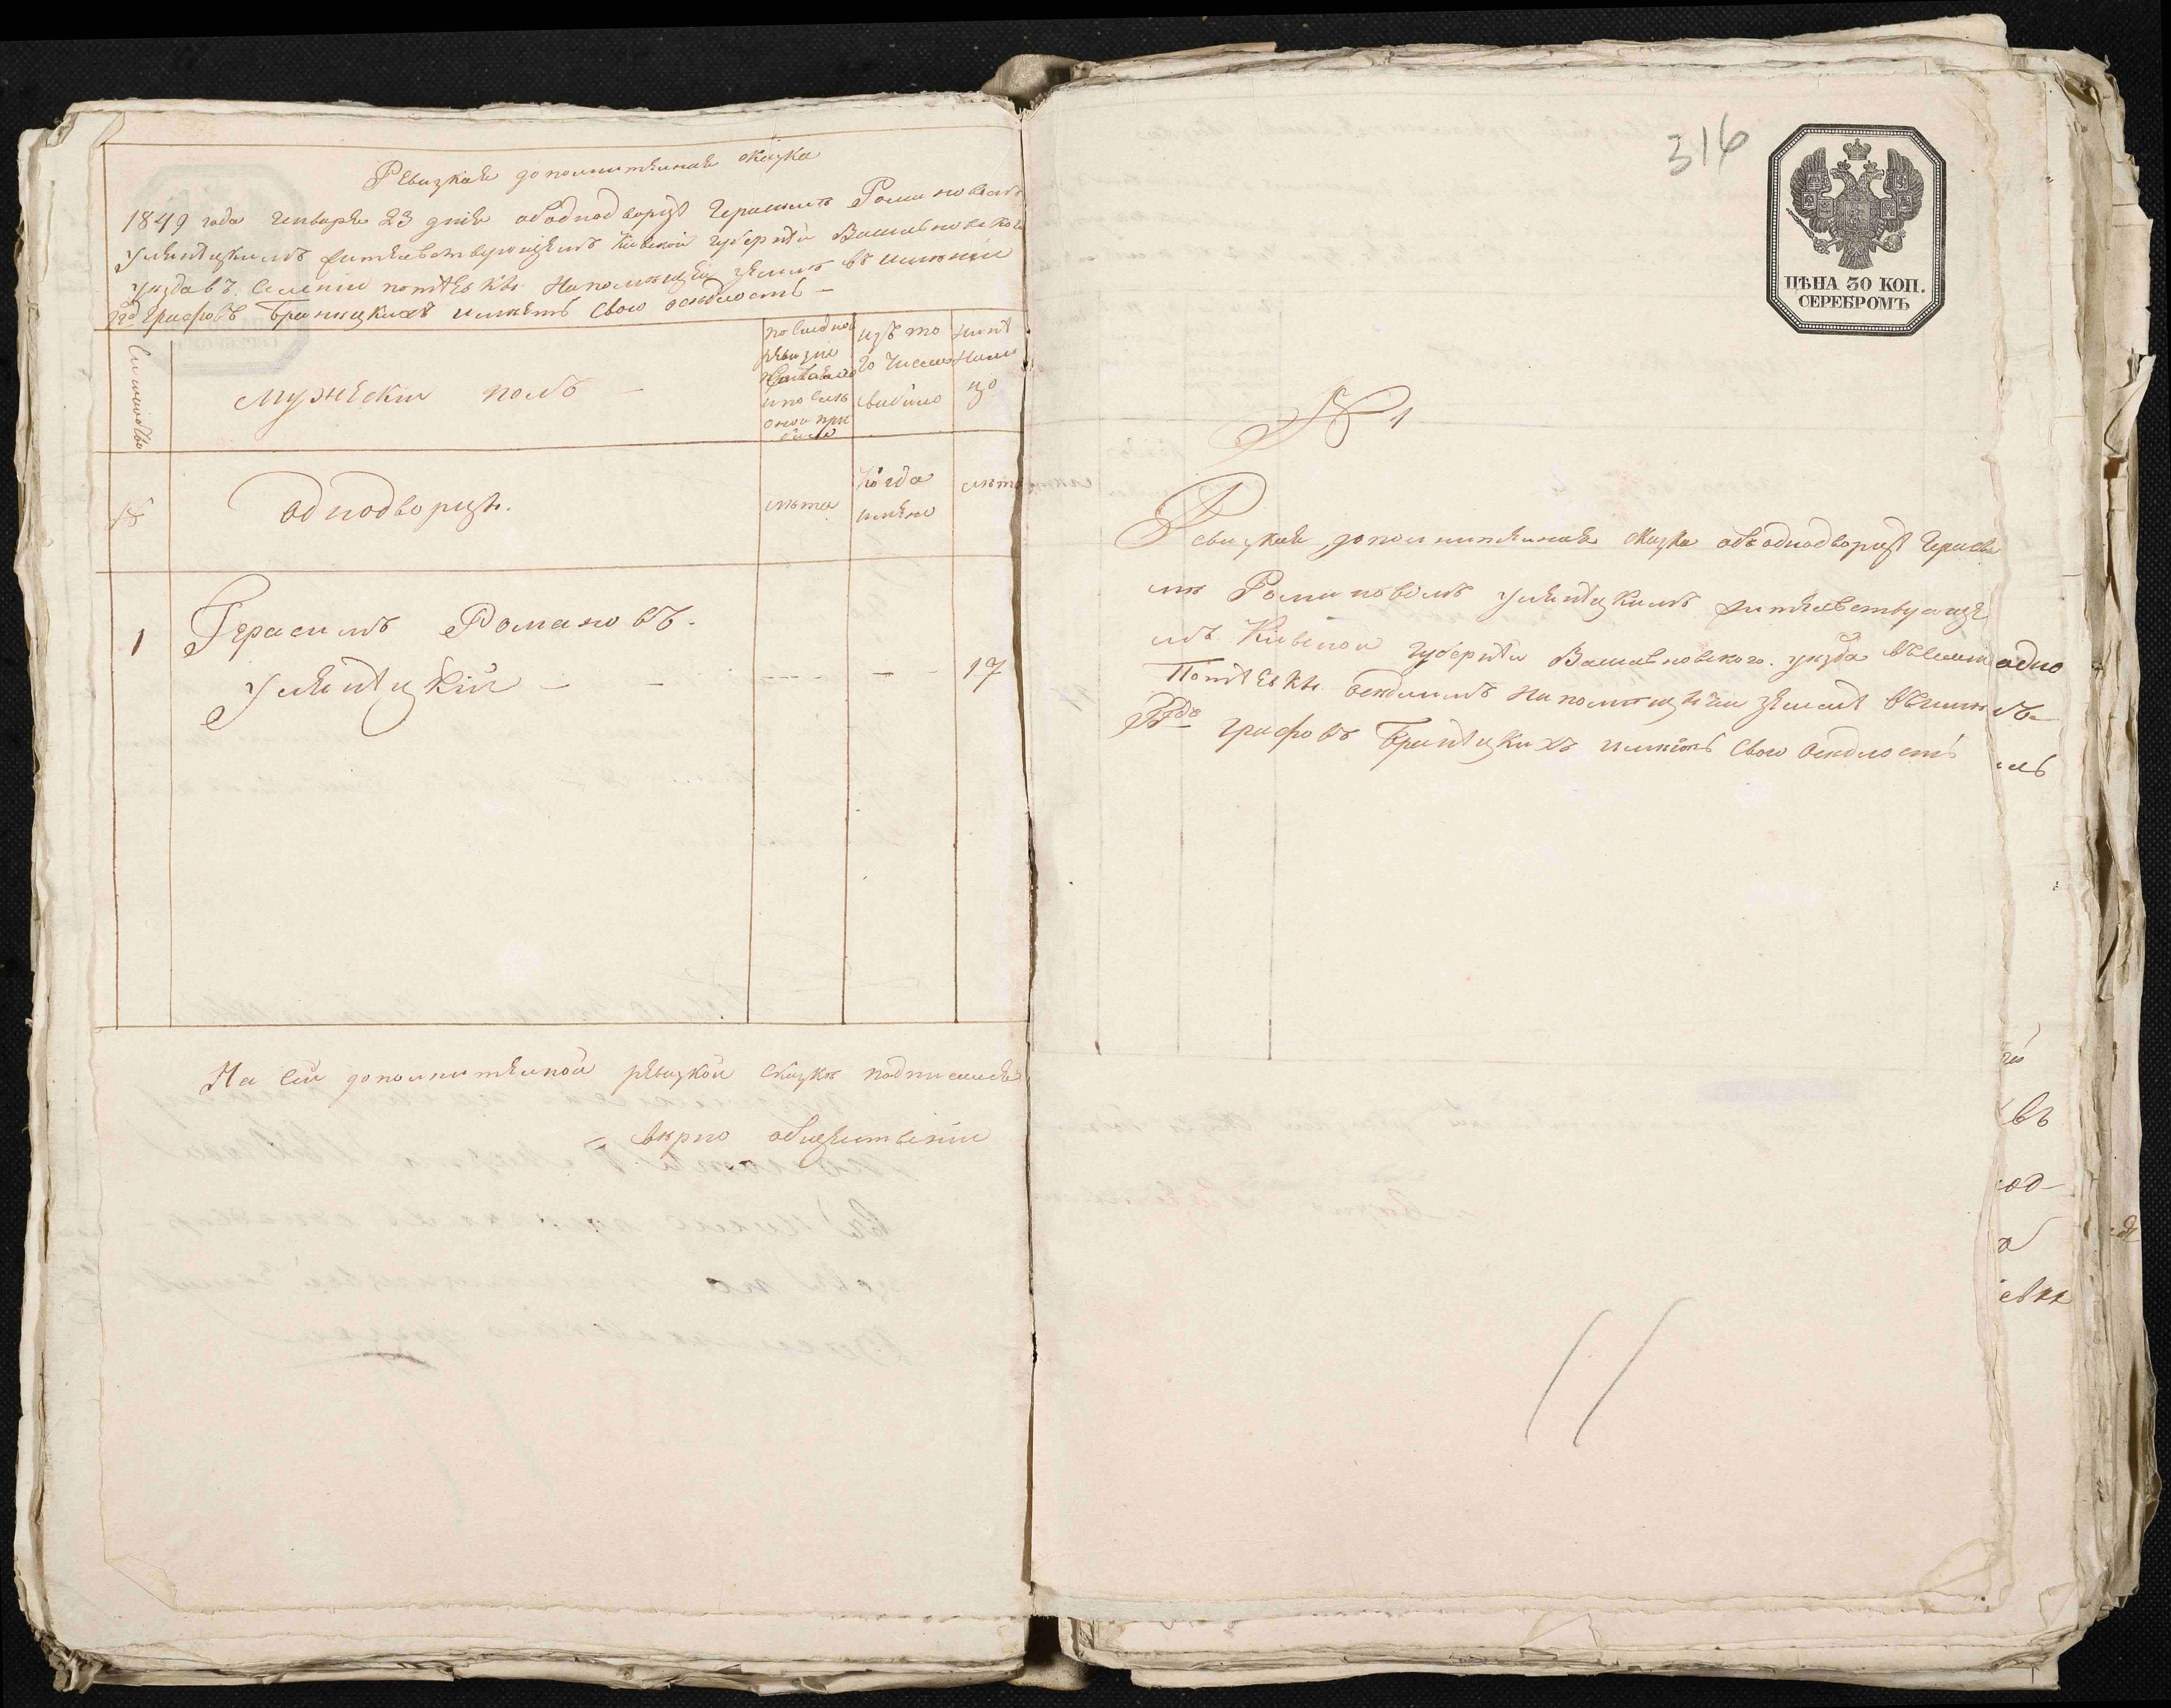 Ревизкая дополнителная сказка
1849 года генваря 23 дня об однодворце Герасиме Романовеомъ
Улениецкимъ жителствующемъ Киевской губернии Василковского
уезда въ селении потиевки на помещецей земле въ имении
Графовъ Браницкихъ имеетъ свою оседлость —
мужески полъ —
по последней
ревизии
состояло
и после
оной при
было
изъ то
го числа
выбыло
ныне
нали
цо
№
однодворцы.
лета
когда
имено
лета
1
Герасимъ Романовъ.
Улениецкий — — — — 17
На сей дополнителной ревизкой сказке подписался
верно
316
ЦѢНА 30 КОП.
СЕРЕБРОМЪ
№ 1
Ревизкая дополнителная сказка об однодворце Гераси
ме Романовомъ Улениецкимъ жителствующе
мъ Киевской губернии Василковского уезда въ селе
Потиевки оседлимъ на помещечей земле въ имен
Графовъ Браницкихъ имеетъ свою оседлость
одно
въ
од-
11